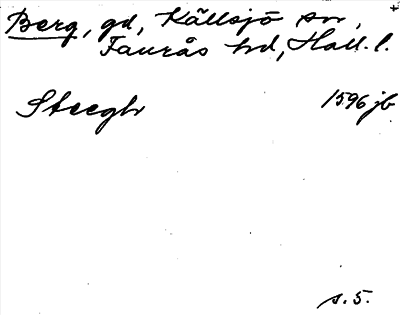 Berg, gd, Källsjö sn,
Faurås hd, Hall. l.
Steegh 1596 jb
s. 5.